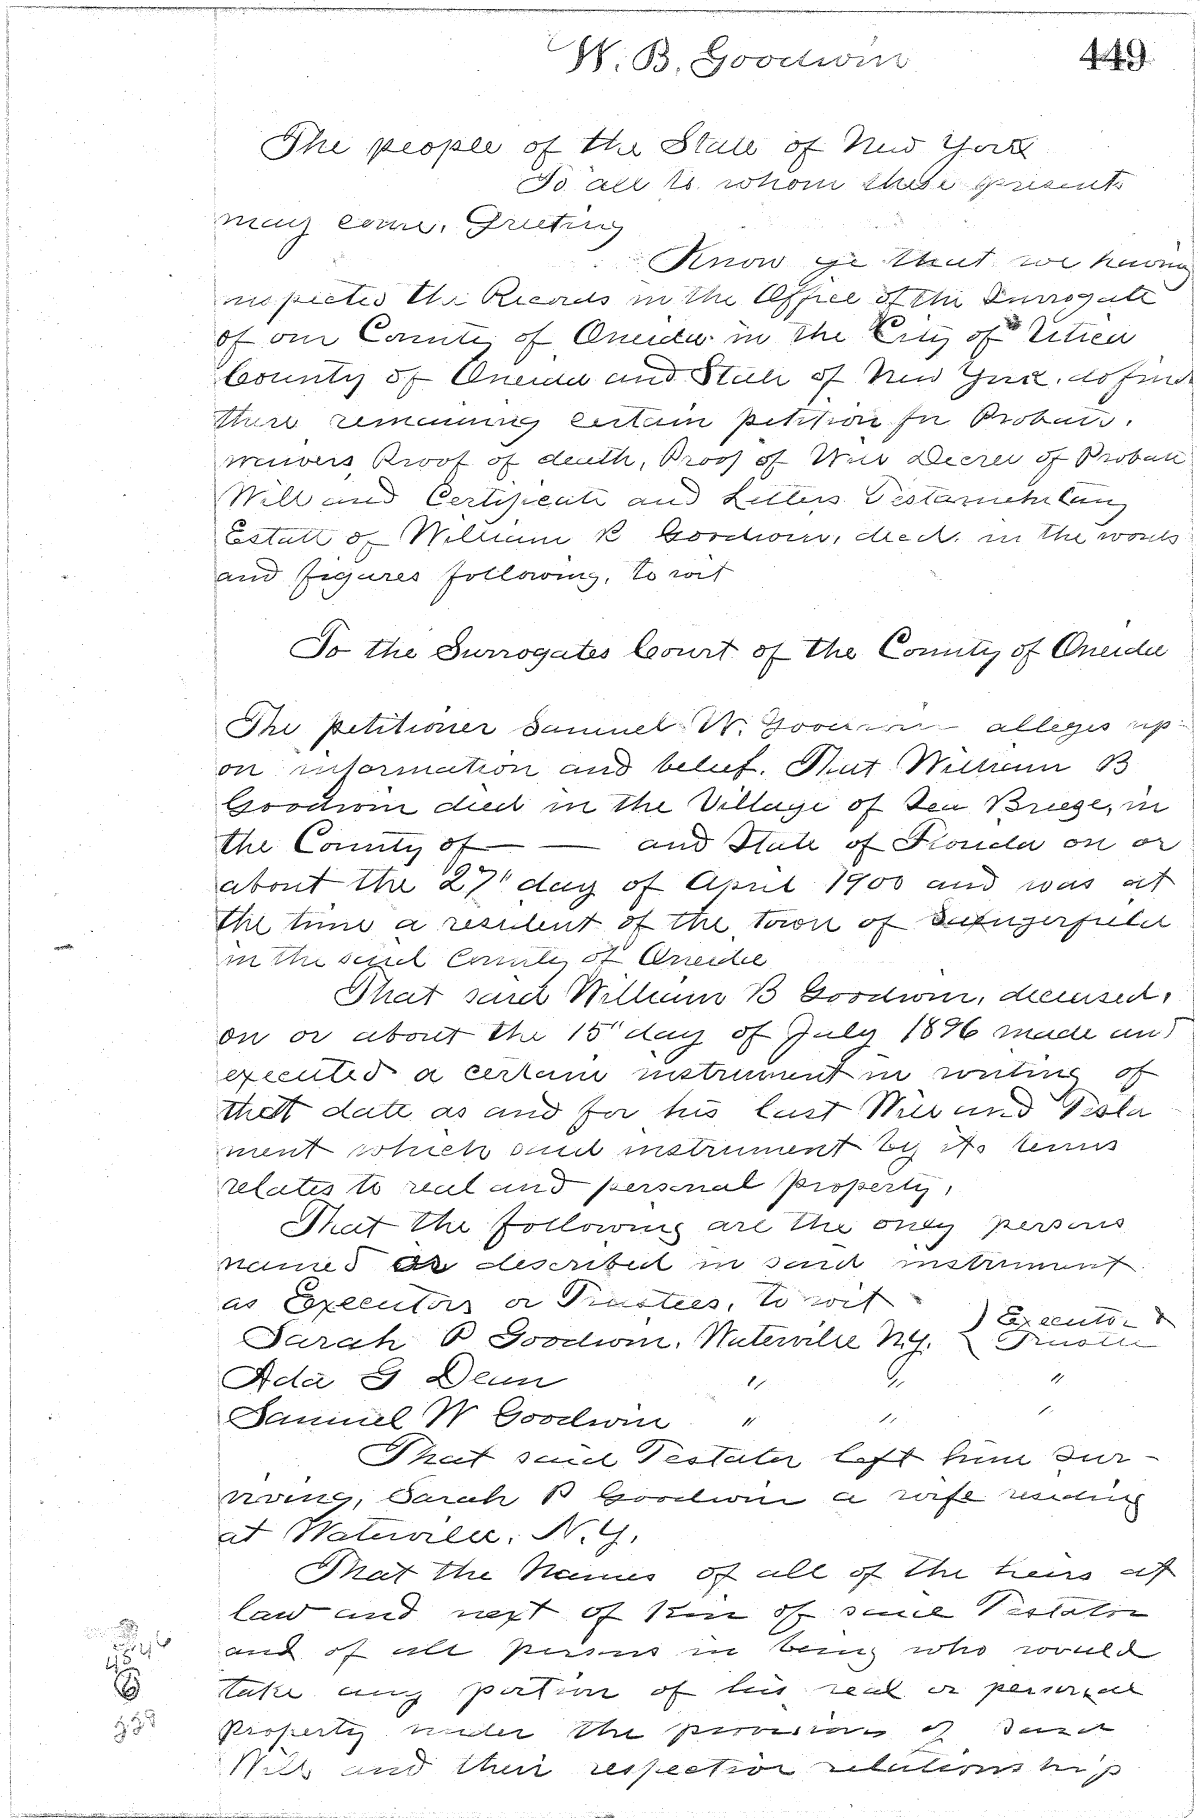 W. B. Goodwin 449
The people of the State of New York
To all to whom these presents
may come, Greeting
Know ye that we having
inspected the Records in the Office of the Surrogate
of our County of Oneida in the City of Utica
County of Oneida and State of New York, do find
there remaining certain petition for Probate,
waivers, Proof of death, Proof of Will Decree of Probate
Will and Certificate and Letters Testamentary
Estate of William B Goodwin, decd. in the words
and figures following, to wit
To the Surrogates Court of the County of Oneida
The petitioner Samuel W. Goodwin alleges up-
on information and belief. That William B
Goodwin died in the Village of Sea Breeze, in
the County of — — and State of Florida on or
about the 27" day of April 1900 and was at
the time a resident of the town of Sangerfield
in the said County of Oneida
That said William B Goodwin, deceased,
on or about the 15" day of July 1896 made and
executed a certain instrument in writing of
that date as and for his last Will and Testa
ment which said instrument by its terms
relates to real and personal property,
That the following are the only persons
named or described in said instrument
as Executors or Trustees, to wit
Sarah P Goodwin, Waterville N.Y. } Executor &
{ Trustee
Ada G Dean " " "
Samuel W Goodwin " " "
That said Testator left him sur-
viving, Sarah P Goodwin a wife residing
at Waterville, N.Y.
That the Names of all of the heirs at
law and next of Kin of said Testator
and of all persons in being who would
take any portion of his real or personal
Property under the provisions of said
Will, and their respective relationship